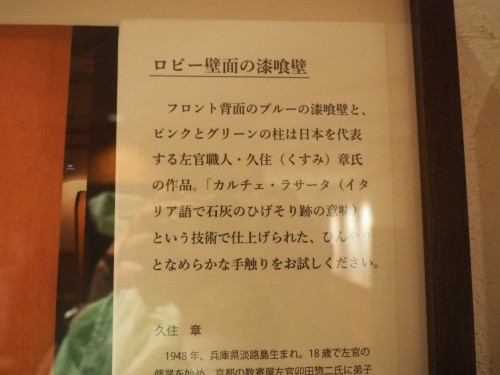 ロビー壁面の漆喰壁
フロント背面のブルーの漆喰壁と、
ピンクとグリーンの柱は日本を代表
する左官職人・久住（くすみ）章氏
の作品。「カルチェ・ラサータ（イタ
リア語で石灰のひげそり跡の意味）
という技術で仕上げられた、ひんやり
となめらかな手触りをお試しください。
久住 章
1948年、兵庫県淡路島生まれ。18歳で左官の
修業を始め、京都の数寄屋左官卯田惣二氏に弟子